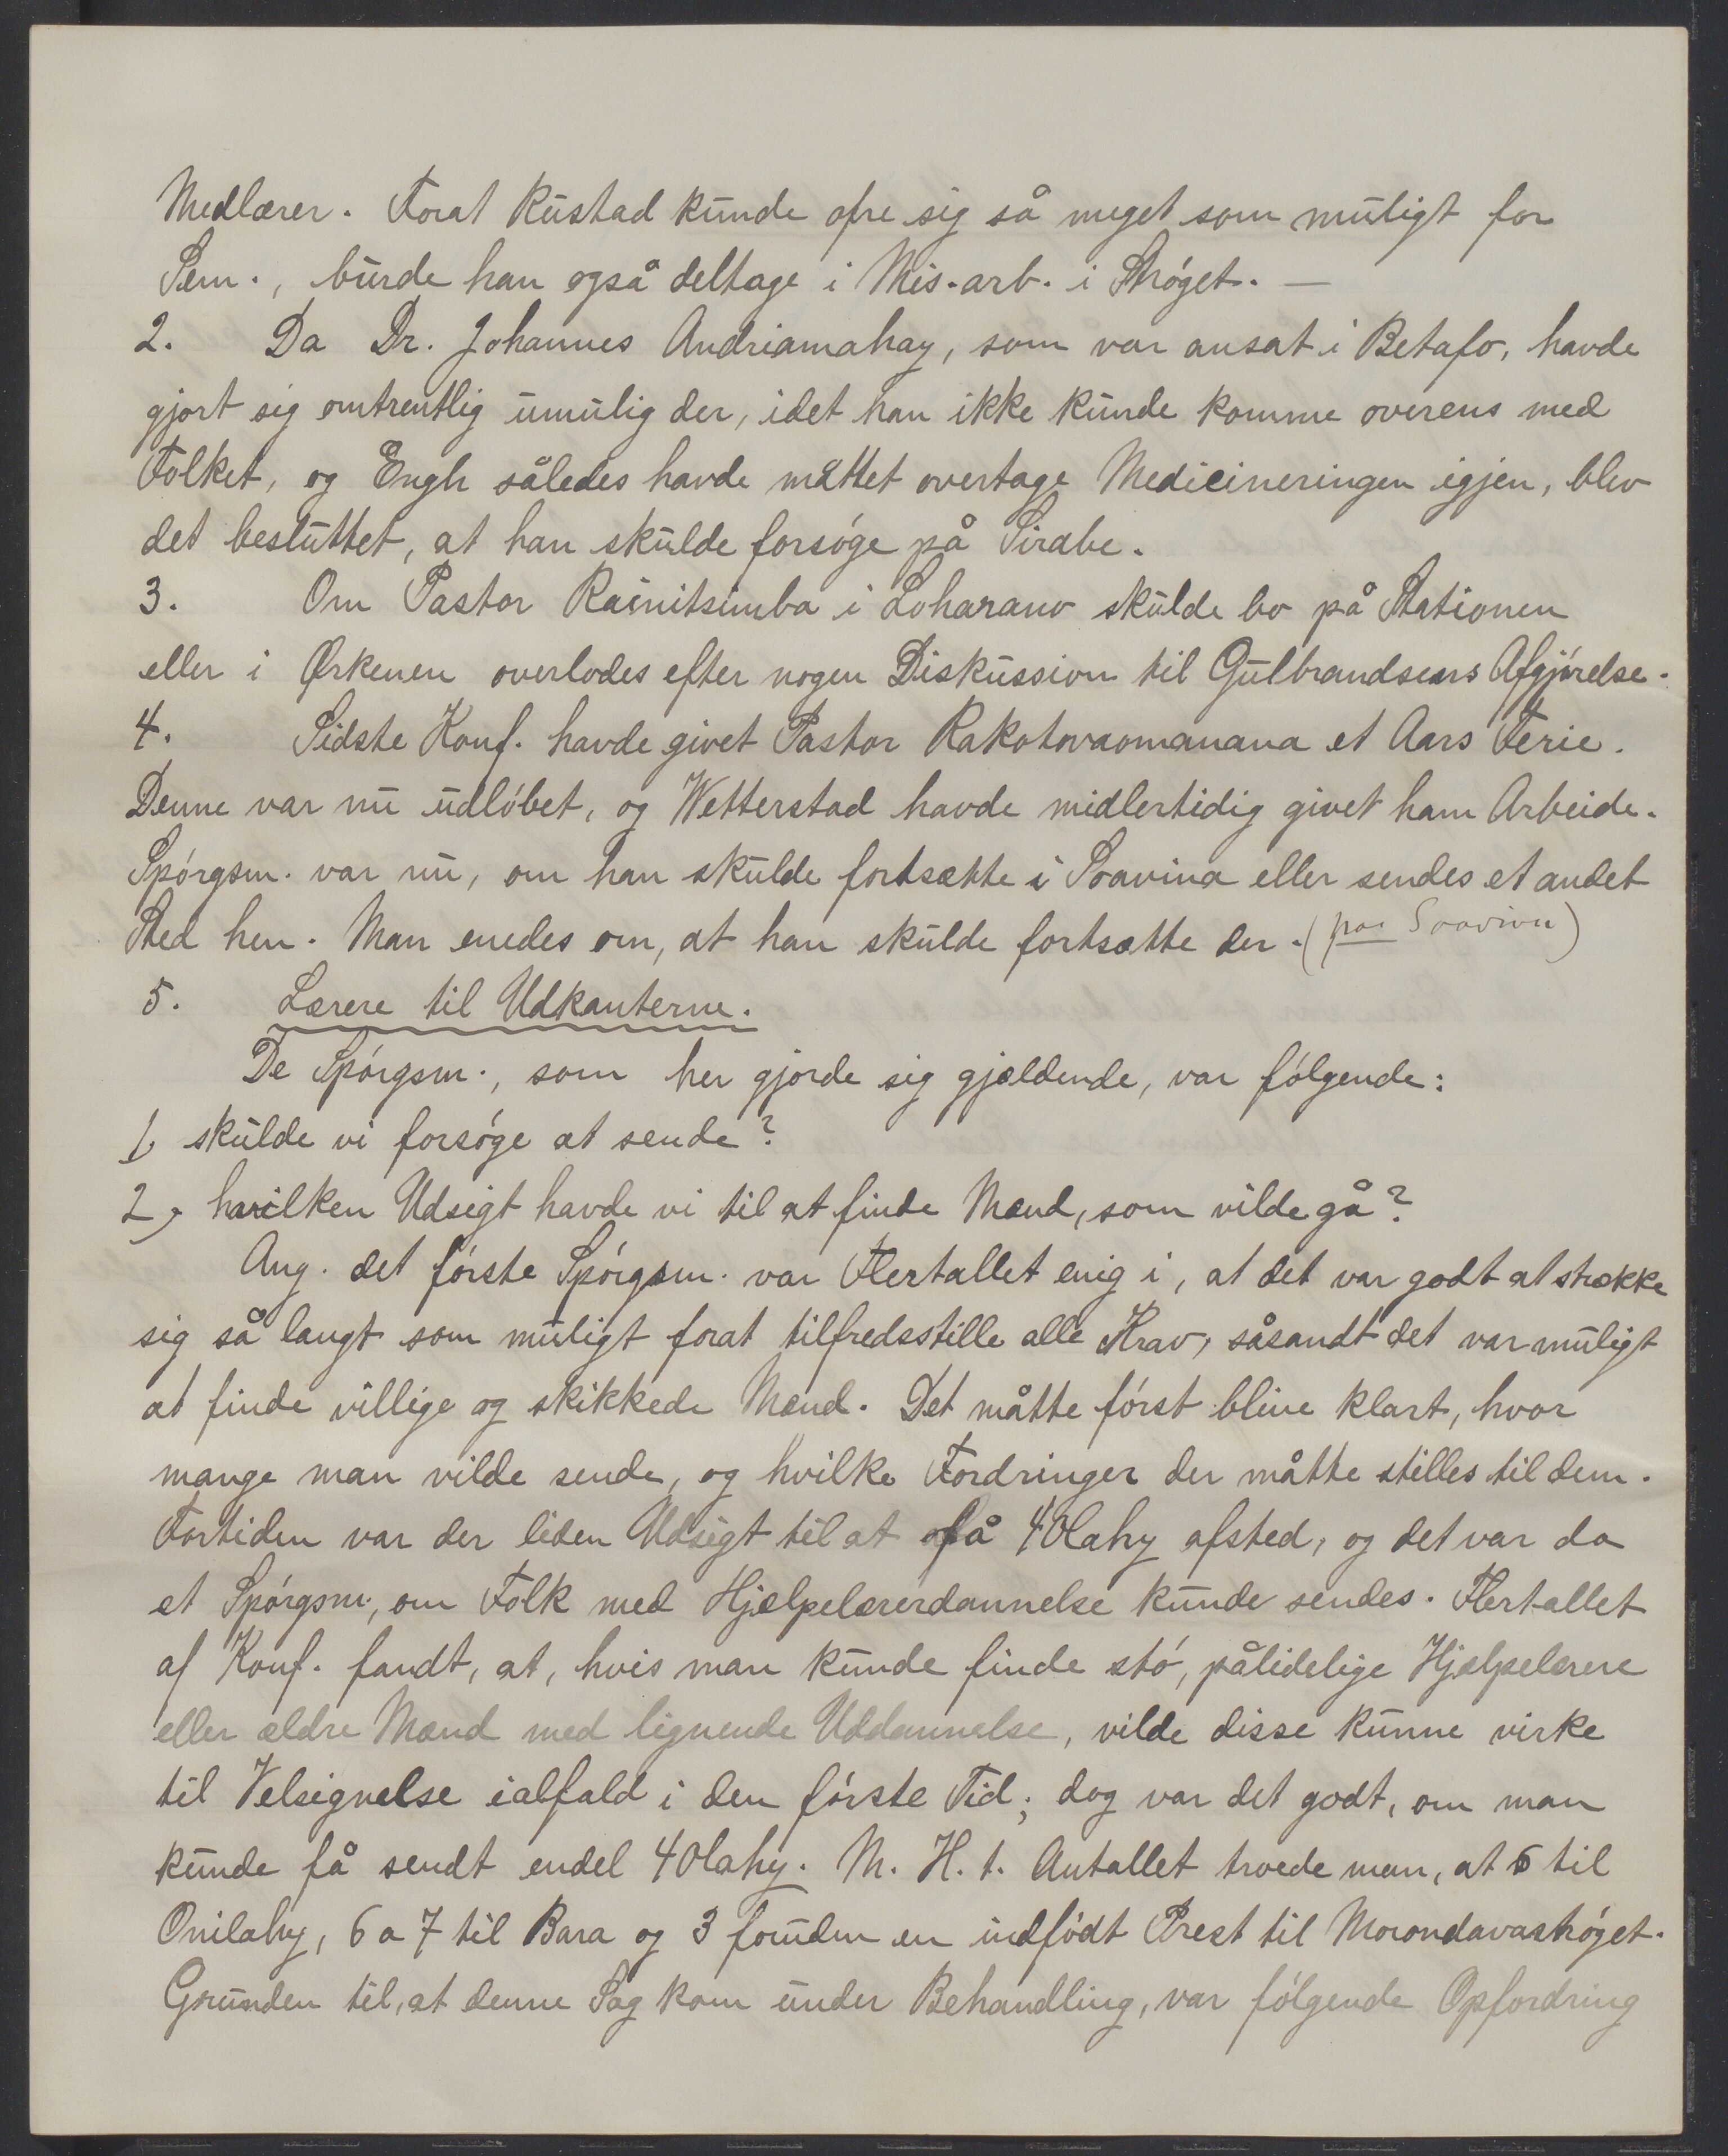 Medlærer. Forat Rustad kunde ofre sig så meget som muligt for
Sem., burde han også deltage i Mis.arb. i Strøget. —
2. Da Dr. Johannes Andriamahay, som var ansat i Betafo, havde
gjort sig omtrentlig umulig der, idet han ikke kunde komme overens med
Folket, og Engh således havde måttet overtage Medicineringen igjen, blev
det besluttet, at han skulde forsøge på Sirabe.
3. Om Pastor Rainitsimba i Loharano skulde bo på Stationen
eller i Ørkenen overlodes efter nogen Diskussion til Gulbrandsens Afgjørelse.
4. Sidste Konf. havde givet Pastor Rakotovaomanana et Aars Ferie.
Denne var nu udløbet, og Wetterstad havde midlertidig givet ham Arbeide.
Spørgsm. var nu, om han skulde fortsætte i Soavina eller sendes et andet
Sted hen. Man enedes om, at han skulde fortsætte der. (paa Soavina)
5. Lærere til Udkanterne.
De Spørgsm., som her gjorde sig gjældende, var følgende:
1, skulde vi forsøge at sende?
2, hvilken Udsigt havde vi til at finde Mænd, som vilde gå?
Ang. det første Spørgsm. var Flertallet enig i, at det var godt at strække
sig så langt som muligt forat tilfredsstille alle Krav, såsandt det var muligt
at finde villige og skikkede Mænd. Det måtte først blive klart, hvor
mange man vilde sende, og hvilke Fordringer der måtte stilles til dem.
Fortiden var der liden Udsigt til at få 40lahy afsted, og det var da
et Spørgsm., om Folk med Hjælpelærerdannelse kunde sendes. Flertallet
af Konf. fandt, at, hvis man kunde finde stø, pålidelige Hjælpelærere
eller ældre Mænd med lignende Uddannelse, vilde disse kunne virke
til Velsignelse ialfald i den første Tid; dog var det godt, om man
kunde få sendt endel 40lahy. M. H. t. Antallet troede man, at 5 til
Onilahy, 6 a 7 til Bara og 3 foruden en indfødt Prest til Morondavastrøget.
Grunden til, at denne Sag kom under Behandling, var følgende Opfordring